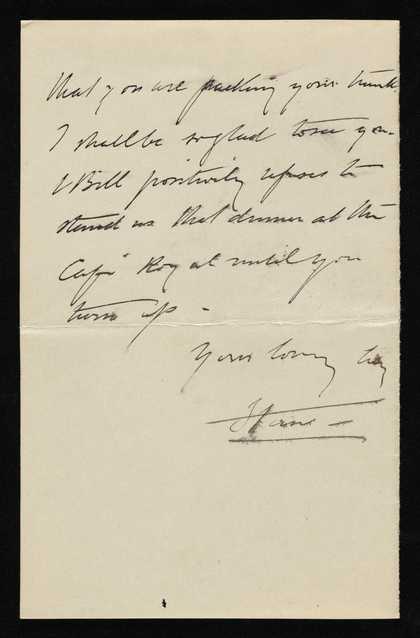 that you are packing your trunk
I shall be so glad to see you -
& Bill positively refuses to
stand us that dinner at the
Café Royal until you
turn up -
Yours loving